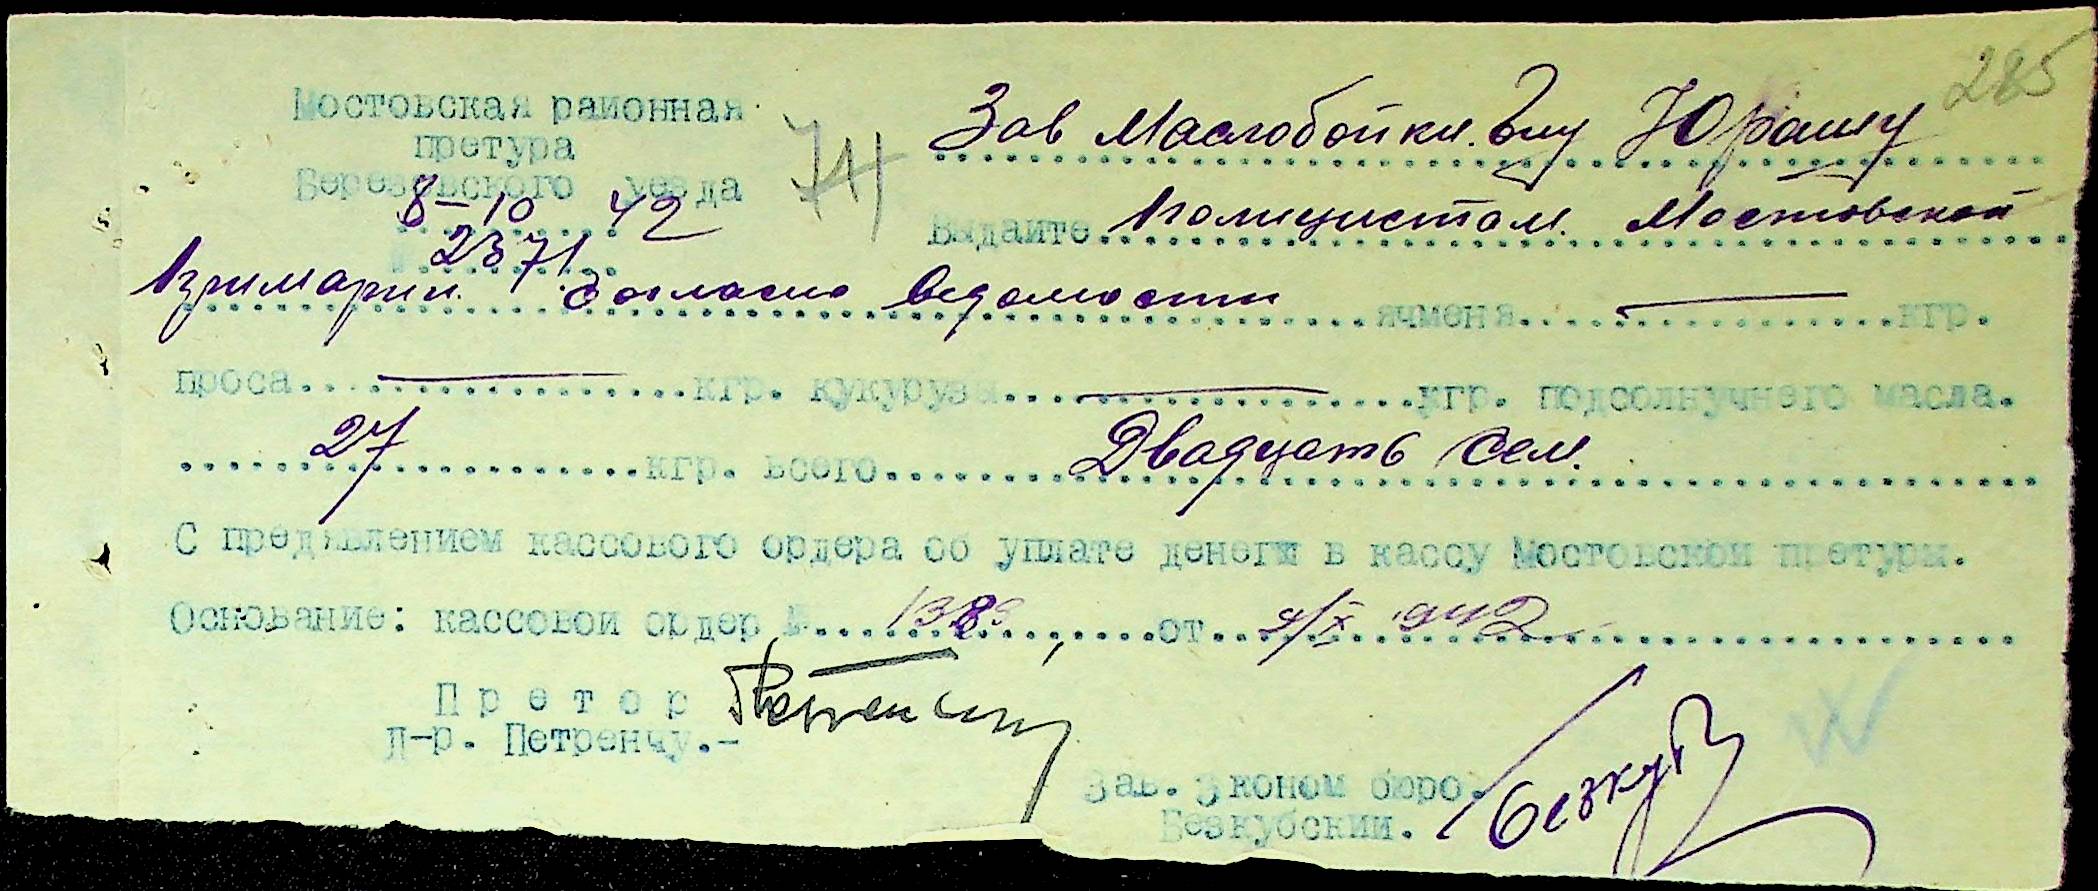 285
Мостовская районная
претура
Березовского уезда
8-10 42
№ 2371
741
Зав Маслобойки. Юрашу
Выдайте Полицистам. Мостовской
Примарии. Согласно ведомости ячменя кгр.
проса кгр. кукурузы кгр. подсолнучнего масла.
27 кгр. всего Двадцать сем.
С пред'явлением кассового ордера об уплате денеги в кассу Мостовской претуры.
Основание: кассовой ордер № 1383, от /X 942
Претор
Д-р. Петренчу.-
Зав. Эконом бюро.
Безкубский. Безкуб